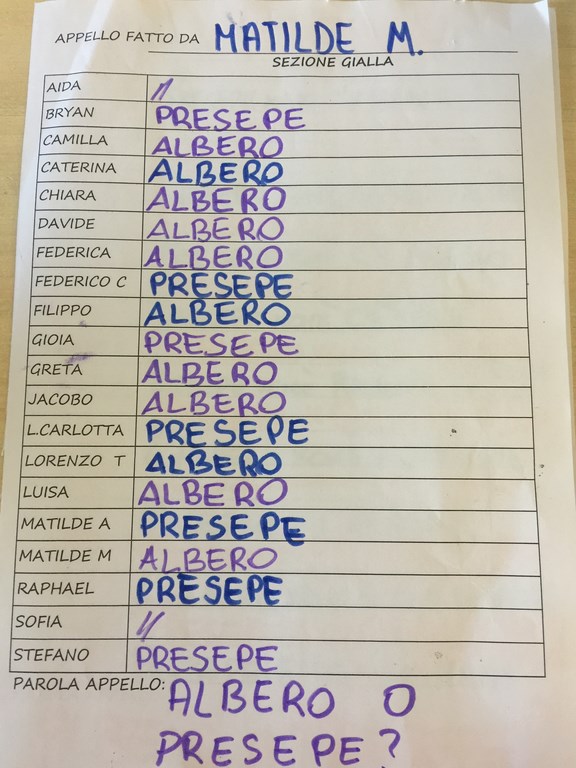 APPELLO FATTO DA MATILDE M.
SEZIONE GIALLA
AIDA //
BRYAN PRESEPE
CAMILLA ALBERO
CATERINA ALBERO
CHIARA ALBERO
DAVIDE ALBERO
FEDERICA ALBERO
FEDERICO C PRESEPE
FILIPPO ALBERO
GIOIA PRESEPE
GRETA ALBERO
JACOBO ALBERO
L.CARLOTTA PRESEPE
LORENZO T ALBERO
LUISA ALBERO
MATILDE A PRESEPE
MATILDE M ALBERO
RAPHAEL PRESEPE
SOFIA //
STEFANO PRESEPE
PAROLA APPELLO: ALBERO O
PRESEPE?